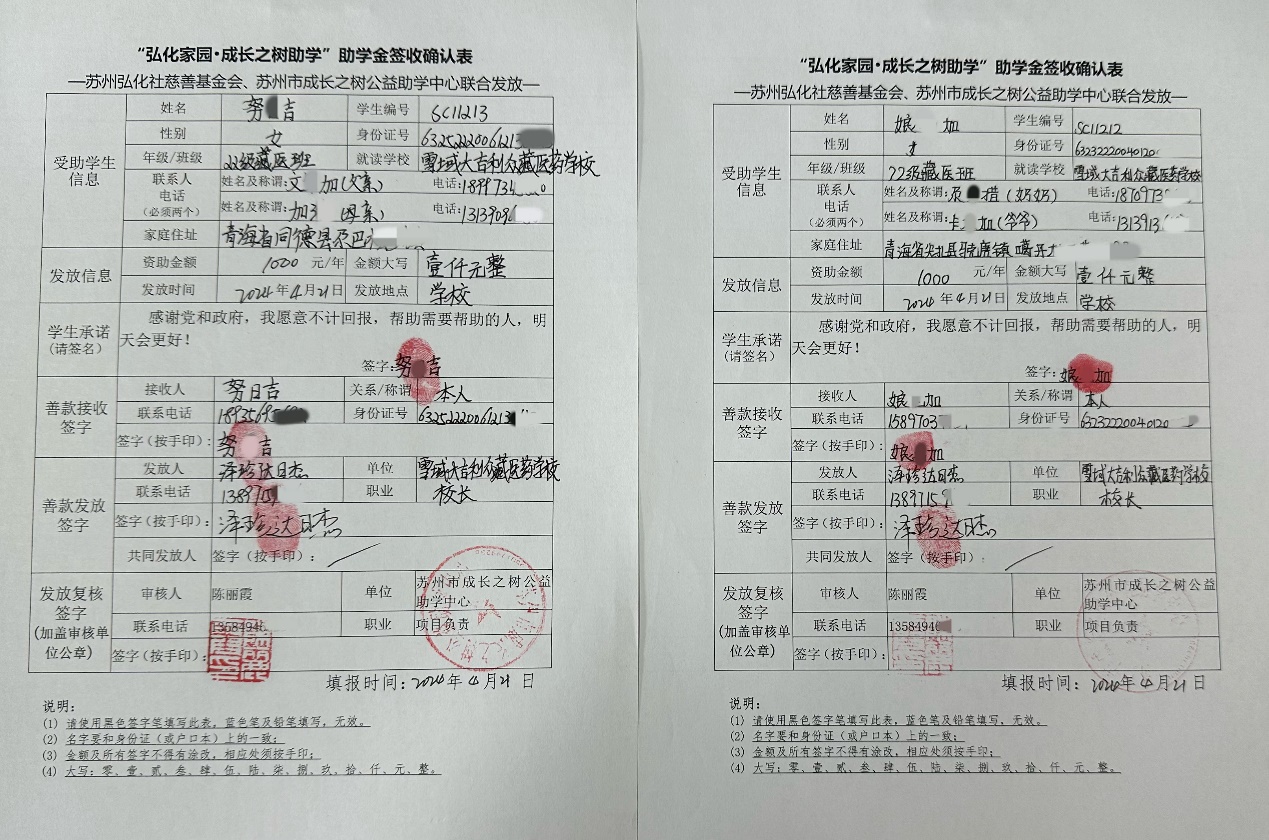 “弘化家园·成长之树助学”助学金签收确认表
—苏州弘化社慈善基金会、苏州市成长之树公益助学中心联合发放—
受助学生信息
姓名 努 吉 学生编号 SC11213
性别 女 身份证号 6325222006121
年级/班级 22级藏医班 就读学校 雪域大吉利众藏医药学校
联系人电话(必须两个)
姓名及称谓:文 加(父亲) 电话:1899734
姓名及称谓:加 母亲) 电话:1313909
家庭住址 青海省同德县尕巴
发放信息
资助金额 1000 元/年 金额大写 壹仟元整
发放时间 2024年4月21日 发放地点 学校
学生承诺(请签名)
感谢党和政府，我愿意不计回报，帮助需要帮助的人，明
天会更好！
签字:努 吉
善款接收签字
接收人 努日吉 关系/称谓 本人
联系电话 1893569 身份证号 6325222006121
签字(按手印)：努 吉
善款发放签字
发放人 泽珍达日杰 单位 雪域大吉利众藏医药学校
联系电话 1389715 职业 校长
签字(按手印)：泽珍达日杰
共同发放人 签字(按手印)：
发放复核签字(加盖审核单位公章)
审核人 陈丽霞 单位 苏州市成长之树公益助学中心
联系电话 1358494 职业 项目负责
签字(按手印)：
填报时间：2024年4月21日
说明：
(1) 请使用黑色签字笔填写此表，蓝色笔及铅笔填写，无效。
(2) 名字要和身份证(或户口本)上的一致；
(3) 金额及所有签字不得有涂改，相应处须按手印；
(4) 大写：零、壹、贰、叁、肆、伍、陆、柒、捌、玖、拾、仟、元、整。
“弘化家园·成长之树助学”助学金签收确认表
—苏州弘化社慈善基金会、苏州市成长之树公益助学中心联合发放—
受助学生信息
姓名 娘 加 学生编号 SC11212
性别 身份证号 63232220040120
年级/班级 22级藏医班 就读学校 雪域大吉利众藏医药学校
联系人电话(必须两个)
姓名及称谓: 措(奶奶) 电话:1870973
姓名及称谓:卡 加(爷爷) 电话:1313913
家庭住址 青海省尖扎县 镇
发放信息
资助金额 1000 元/年 金额大写 壹仟元整
发放时间 2024年4月21日 发放地点 学校
学生承诺(请签名)
感谢党和政府，我愿意不计回报，帮助需要帮助的人，明
天会更好！
签字:娘 加
善款接收签字
接收人 娘 加 关系/称谓 本人
联系电话 1589703 身份证号 63232220040120
签字(按手印)：娘 加
善款发放签字
发放人 泽珍达日杰 单位 雪域大吉利众藏医药学校
联系电话 1389715 职业 校长
签字(按手印)：泽珍达日杰
共同发放人 签字(按手印)：
发放复核签字(加盖审核单位公章)
审核人 陈丽霞 单位 苏州市成长之树公益助学中心
联系电话 1358494 职业 项目负责
签字(按手印)：
填报时间：2024年4月21日
说明：
(1) 请使用黑色签字笔填写此表，蓝色笔及铅笔填写，无效。
(2) 名字要和身份证(或户口本)上的一致；
(3) 金额及所有签字不得有涂改，相应处须按手印；
(4) 大写：零、壹、贰、叁、肆、伍、陆、柒、捌、玖、拾、仟、元、整。